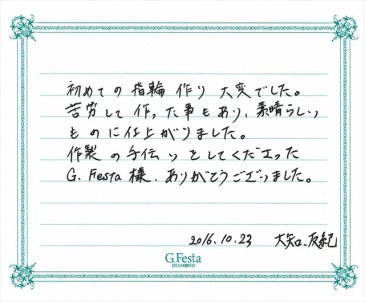 初めての指輪作り大変でした。
苦労して作った事もあり、素晴らしい
ものに仕上がりました。
作製の手伝いをしてくださった
G. Festa 様、ありがとうございました。
2016.10.23 大知
G.Festa
DIAMOND